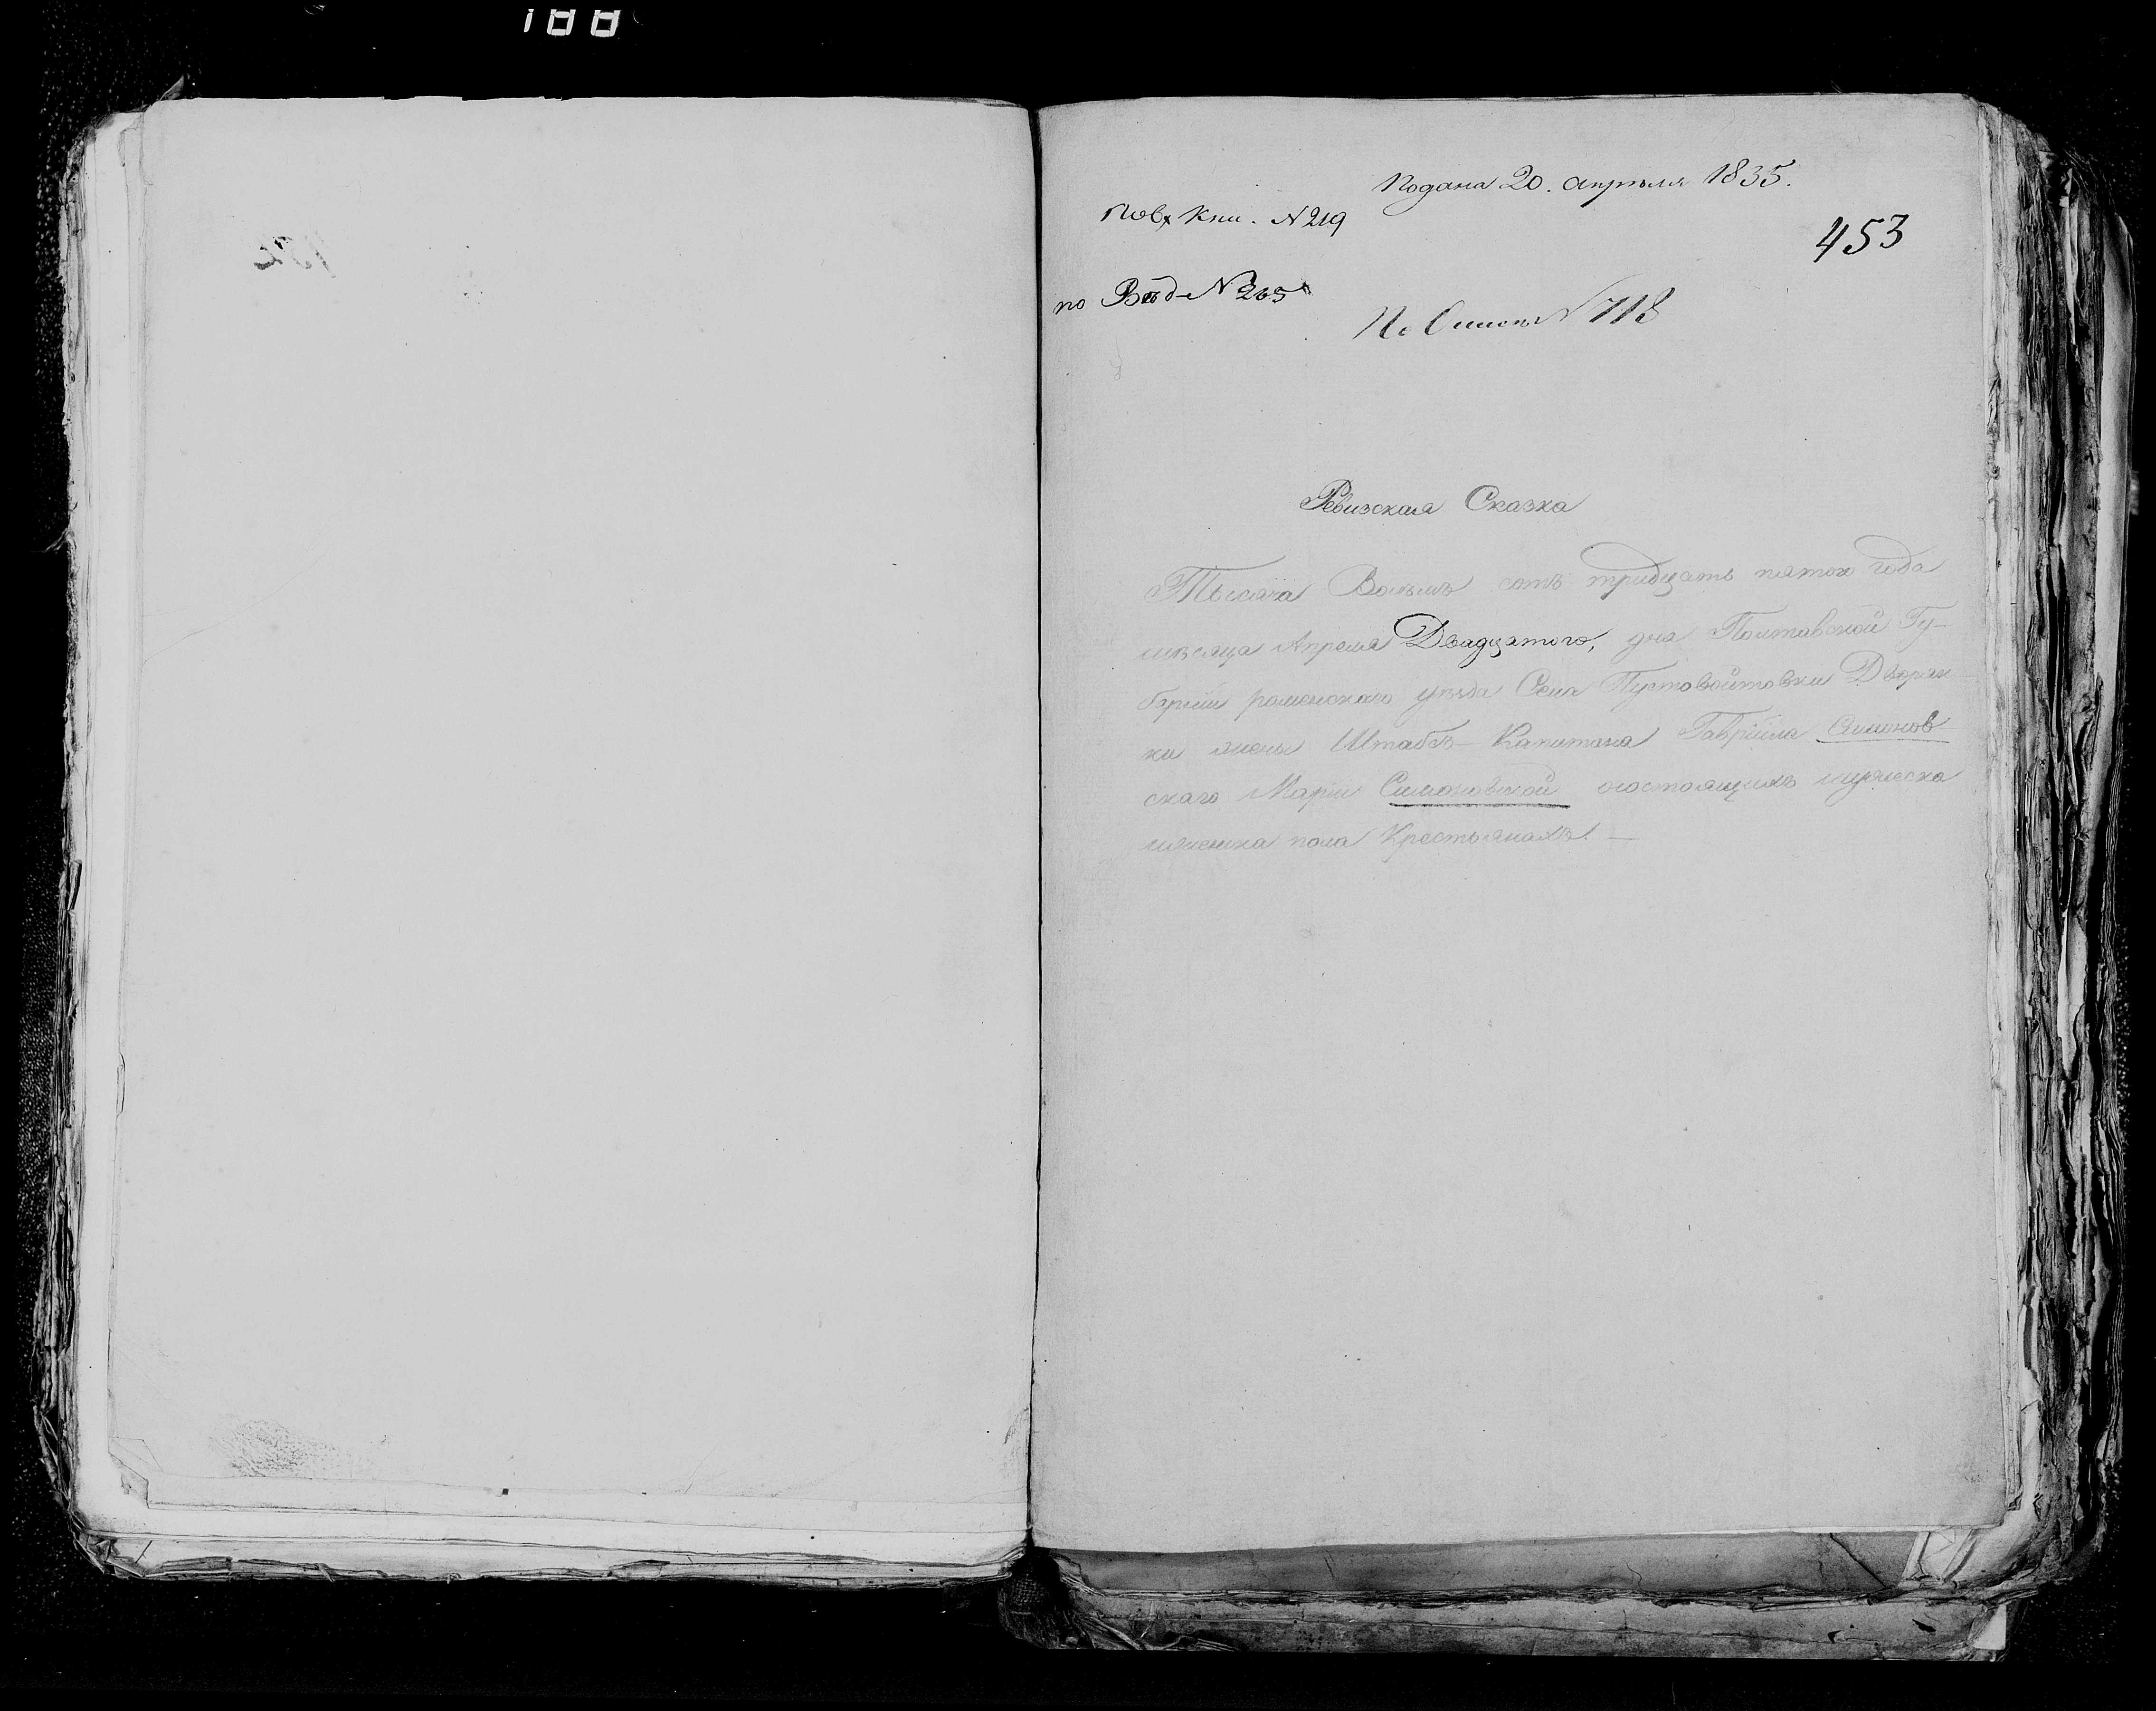 188
Подана 20. апрѣля 1835.
Кни. N 219
453
по Вѣд N 265
По Описи N 718
Ревизская Сказка
Тысяча Восѣмъ сотъ тридцать пятого года
мѣсяца Апреля Двадцятого, дня Полтавской Гу-
бернiи роменскаго уезда Села Пустовойтовки Дворян-
ки жены Штабсъ-Капитана Гаврiила Симонов-
скаго Марiи Симоновской о состоящихъ мужеска
и женска пола Крестьянахъ. —